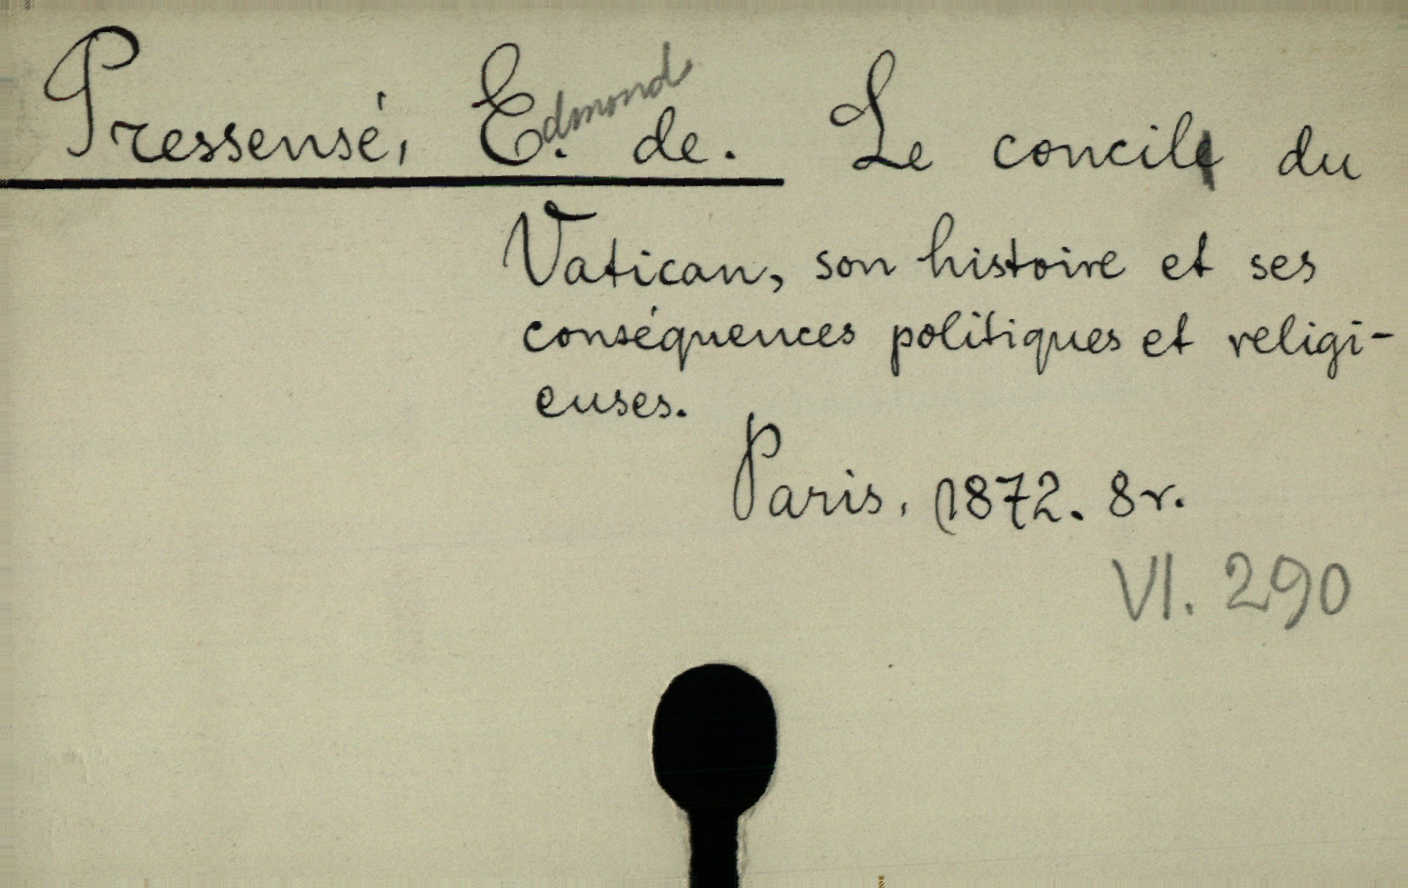 Pressensé, E. Edmond de. Le concile du
Vatican, son histoire et ses
conséquences politiques et religi-
euses.
Paris, 1872. 8r.
VI. 290